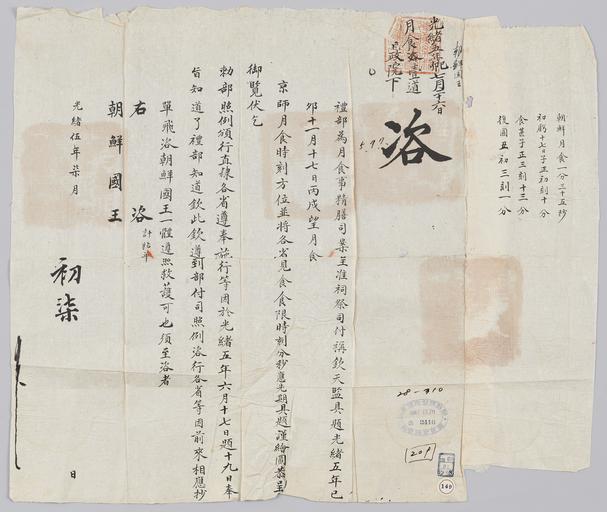 朝鮮月食一分三十五秒
初虧十七日子正初刻十分
食甚子正三刻十三分
復圓丑初三刻一分
朝鮮國王
光緒五年 七月十六日
月食咨壹道
政院下
咨
禮部為月食事精膳司案呈准祠祭司付稱欽天監具題光緒五年己
卯十一月十七日丙戌望月食
京師月食時刻方位並將各省見食食限時刻分秒應先期具題謹繪圖恭呈
御覽伏乞
勅部照例頒行直隸各省遵奉施行等因於光緒五年六月十七日題十九日奉
旨知道了禮部知道欽此欽遵到部付司照例咨行各省等因前來相應抄
單飛咨朝鮮國王一體遵照救護可也須至咨者
右 咨 計粘單
朝鮮國王
光緒伍年柒月
初柒
日
5.97
28-910
209
149